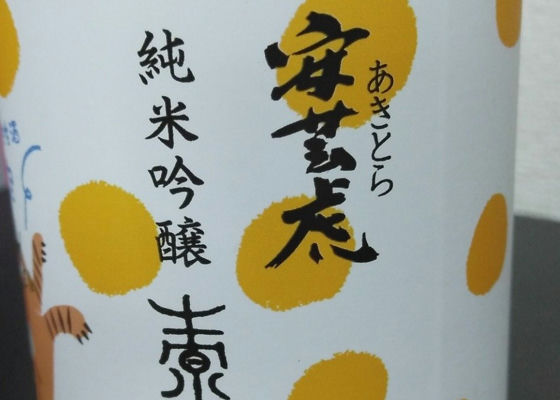 あきとら
安芸虎
純米吟醸
素